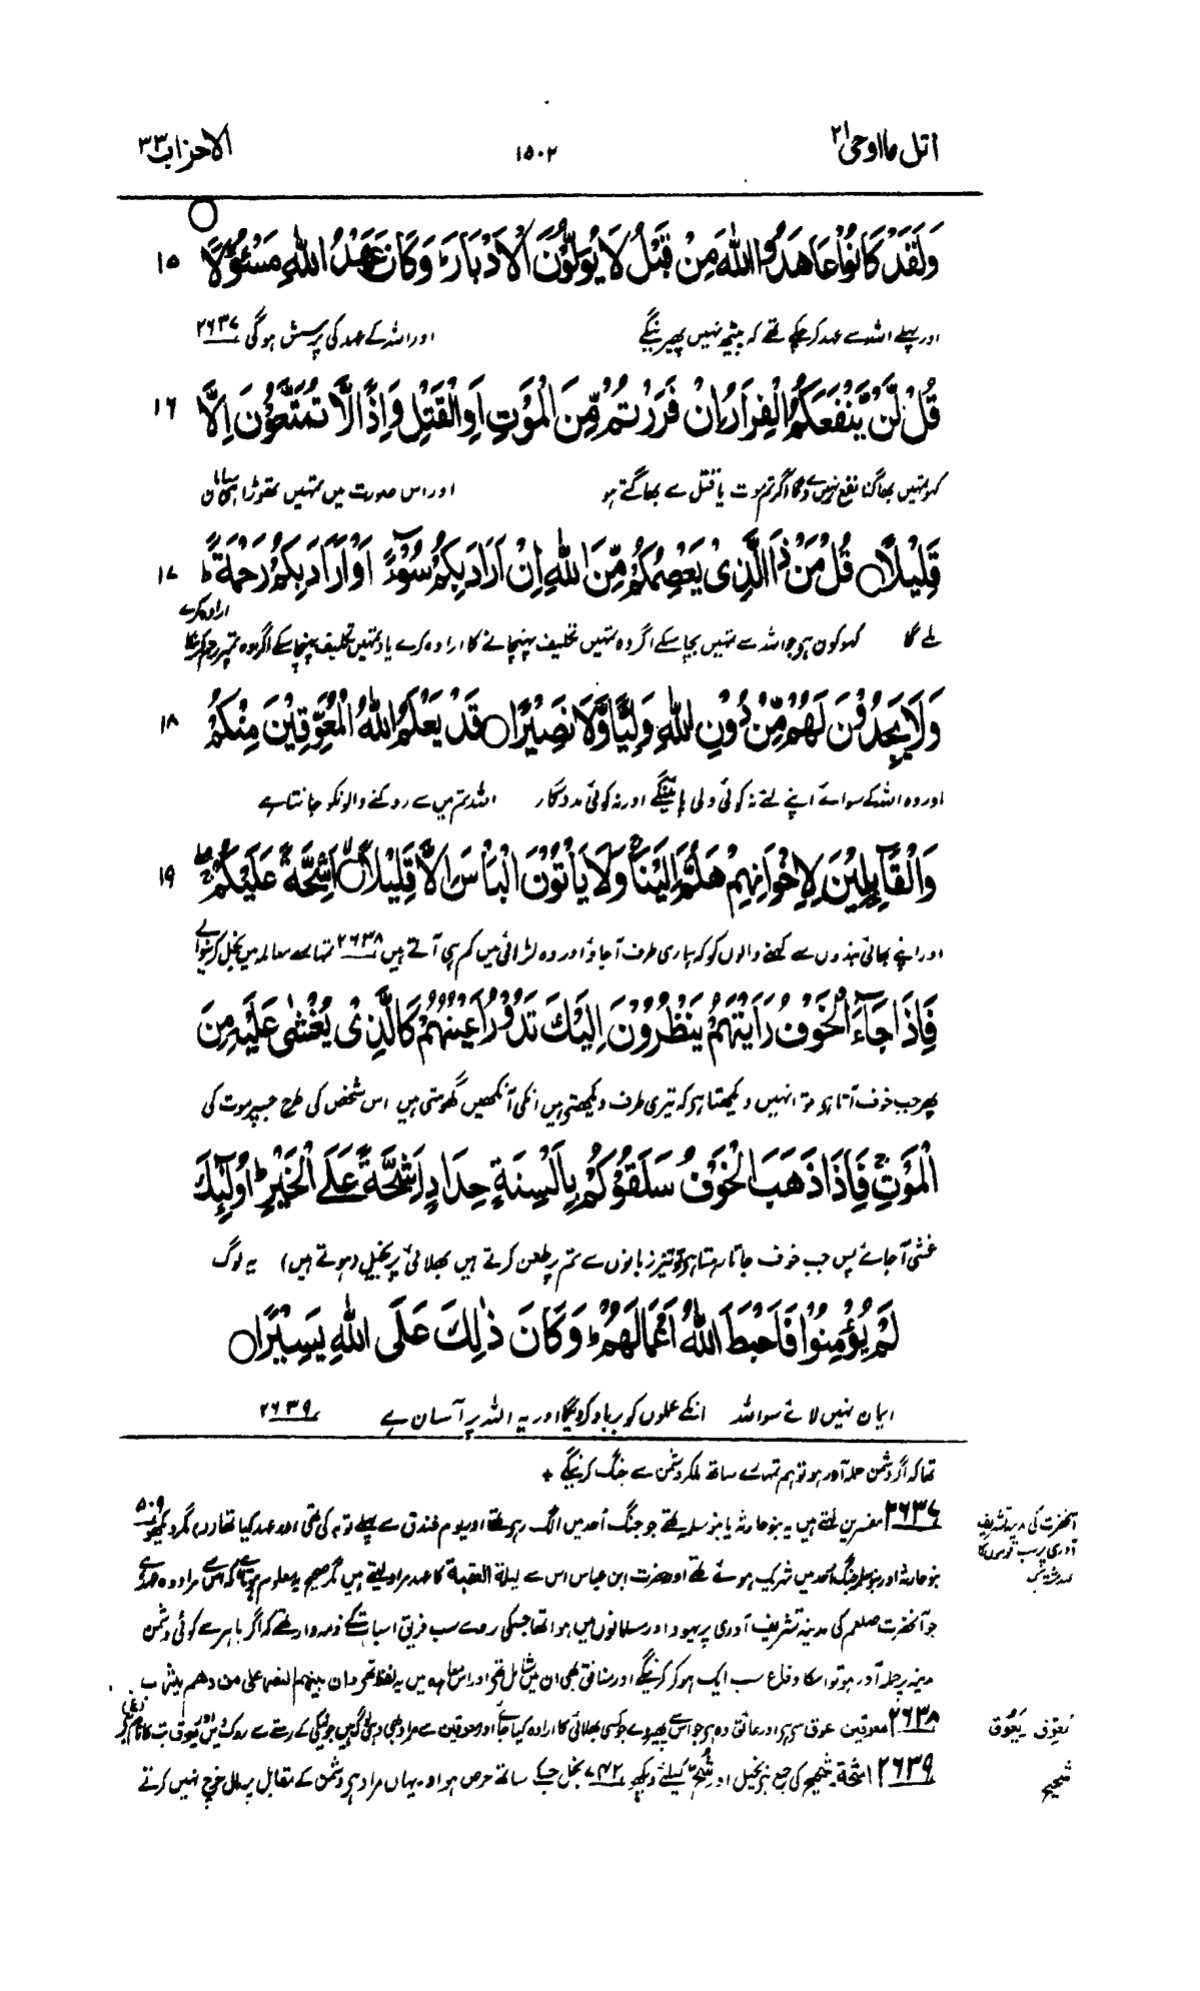 اتل ما اوحی ۲۱
۱۵۰۲
الاحزاب ۳۳
وَلَقَدْ كَانُوْا عَاهَدُوا اللّٰهَ مِنْ قَبْلُ لَا يُوَلُّوْنَ الْاَدْبَارَ ؕ وَكَانَ عَهْدُ اللّٰهِ مَسْـُٔوْلًا ۱۵
اور پہلے اللہ سے عہد کرچکے تھے کہ پیٹھ نہیں پھیرینگے اور اللہ کے عہد کی پرسش ہوگی ۲۶۳۷
قُلْ لَّنْ يَّنْفَعَكُمُ الْفِرَارُ اِنْ فَرَرْتُمْ مِّنَ الْمَوْتِ اَوِ الْقَتْلِ وَاِذًا لَّا تُمَتَّعُوْنَ اِلَّا ۱۶
کہو تمہیں بھاگنا نفع نہیں دیگا اگر تم موت یا قتل سے بھاگتے ہو اور اس صورت میں تمہیں تھوڑا ہی سامان
قَلِيْلًا ○ قُلْ مَنْ ذَا الَّذِيْ يَعْصِمُكُمْ مِّنَ اللّٰهِ اِنْ اَرَادَ بِكُمْ سُوْٓءًا اَوْ اَرَادَ بِكُمْ رَحْمَةً ؕ ۱۷
ملے گا کہو کون ہے جو اللہ سے تمہیں بچا سکے اگر وہ تمہیں تکلیف پہنچانے کا ارادہ کرے یا تمہیں تکلیف پہنچا سکے اگر وہ تم پر رحم کرنیکا ارادہ کرے
وَلَا يَجِدُوْنَ لَهُمْ مِّنْ دُوْنِ اللّٰهِ وَلِيًّا وَّلَا نَصِيْرًا ○ قَدْ يَعْلَمُ اللّٰهُ الْمُعَوِّقِيْنَ مِنْكُمْ ۱۸
اور وہ اللہ کے سوائے اپنے لئے نہ کوئی ولی پائینگے اور نہ کوئی مددگار اللہ تم میں سے روکنے والونکو جانتا ہے
وَالْقَآئِلِيْنَ لِاِخْوَانِهِمْ هَلُمَّ اِلَيْنَا ۚ وَلَا يَاْتُوْنَ الْبَاْسَ اِلَّا قَلِيْلًا ○ اَشِحَّةً عَلَيْكُمْ ۖ ۱۹
اور اپنے بھائی بندوں سے کہنے والوں کو کہ ہماری طرف آجاؤ اور وہ لڑائی میں کم ہی آتے ہیں ۲۶۳۸ تمہارے معاملہ میں بخل کرنیوالے
فَاِذَا جَآءَ الْخَوْفُ رَاَيْتَهُمْ يَنْظُرُوْنَ اِلَيْكَ تَدُوْرُ اَعْيُنُهُمْ كَالَّذِيْ يُغْشٰى عَلَيْهِ مِنَ
پھر جب خوف آتا ہو تو انہیں دیکھتا ہو کہ تیری طرف دیکھتے ہیں انکی آنکھیں گھومتی ہیں اس شخص کی طرح جسپر موت کی
الْمَوْتِ ۚ فَاِذَا ذَهَبَ الْخَوْفُ سَلَقُوْكُمْ بِاَلْسِنَةٍ حِدَادٍ اَشِحَّةً عَلَى الْخَيْرِ ؕ اُولٰٓئِكَ
غشی آجائے پس جب خوف جاتا رہتا ہو تو تیز زبانوں سے تم پر طعن کرتے ہیں بھلائی پر بخیل (ہوتے ہیں) یہ لوگ
لَمْ يُؤْمِنُوْا فَاَحْبَطَ اللّٰهُ اَعْمَالَهُمْ ؕ وَكَانَ ذٰلِكَ عَلَى اللّٰهِ يَسِيْرًا ○
ایمان نہیں لائے سو اللہ انکے عملوں کو برباد کردیگا اور یہ اللہ پر آسان ہے ۲۶۳۹
تھا کہ اگر دشمن حملہ آور ہو تو ہم تمہارے ساتھ ملکر دشمن سے جنگ کرینگے +
۲۶۳۷ مفسرین لکھتے ہیں یہ بنو حارثہ یا بنو سلمہ تھے جو جنگ اُحد میں الگ رہے تھے اور یوم خندق سے پہلے توبہ کی تھی اور عہد کیا تھا (د) مگر دیکھو ۵۰۹
بنو حارثہ اور بنو سلمہ جنگ اُحد میں شریک ہوئے تھے اور حضرت ابن عباس اس سے لیلۃ العقبۃ کا عہد مراد لیتے ہیں مگر صحیح یہ معلوم ہوتا ہے کہ اس سے مراد وہ عہد ہے
جو آنحضرت صلعم کی مدینہ تشریف آوری پر یہود اور مسلمانوں میں ہوا تھا جسکی رو سے سب فریق اس بات کے ذمہ وار تھے کہ اگر باہر سے کوئی دشمن
مدینہ پر حملہ آور ہو تو اسکا دفاع سب ایک ہو کر کرینگے اور منافق بھی ان میں شامل تھے اور اس معاہدہ میں یہ لفظ تھے وان بینھم النصر علی من دھم یثرب
۲۶۳۸ معوقین عوق سے ہے اور عائق وہ ہے جو اس سے پھیر دے جو کسی بھلائی کا ارادہ کیا جائے اور معوقین سے مراد بھی وہی لوگ ہیں جو نیکی کے رستے سے روکتے ہیں اور یعوق بت کا نام ہے (غ)
۲۶۳۹ اشحۃ شحیح کی جمع ہے بخیل اور شُحّ کیلئے دیکھو ۷۴۲ بخل جسکے ساتھ حرص ہو اور یہاں مراد ہے دشمن کے مقابل پر مال خرچ نہیں کرتے
آنحضرت کی مدینہ تشریف
آوری پر سب قوموں کا
عوق یعوق
شحیح